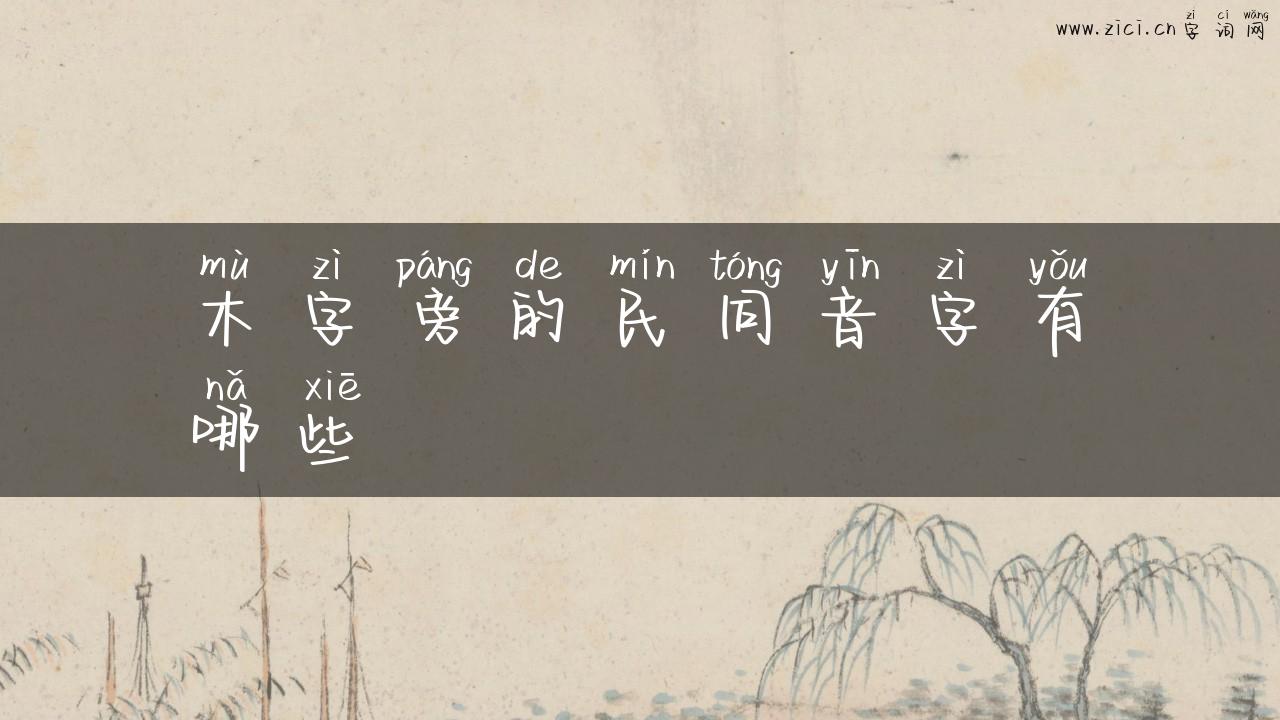 zì cí wǎng
www.zici.cn 字词网
mù zì páng de mín tóng yīn zì yǒu
木字旁的民同音字有
nǎ xiē
哪些